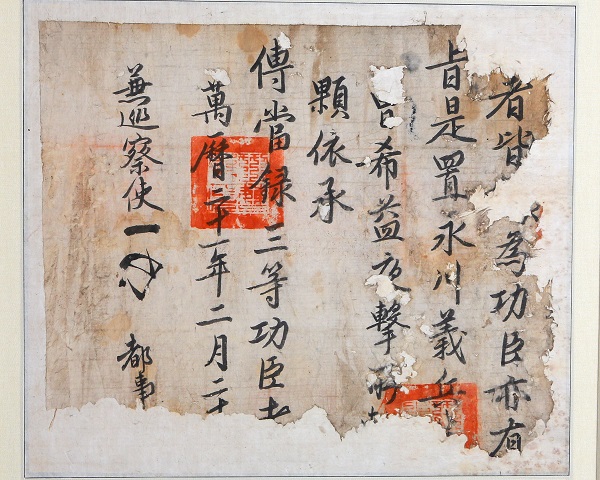 者皆為功臣亦有
旨是置永川義兵
希益夜擊
顆依承
傳當錄三等功臣
萬曆二十一年二月二十
兼巡察使
都事